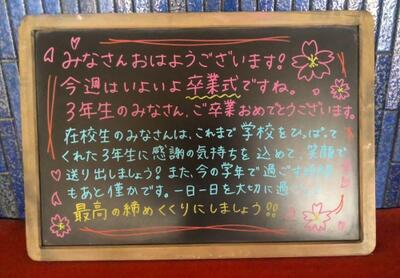 みなさんおはようございます!
今週はいよいよ卒業式ですね。
3年生のみなさん、ご卒業おめでとうございます。
在校生のみなさんは、これまで学校をひっぱって
くれた3年生に感謝の気持ちを込めて、笑顔で
送り出しましょう!また、今の学年で過ごす
もあと僅かです。一日一日を大切に過
最高の締めくくりにしましょう!!